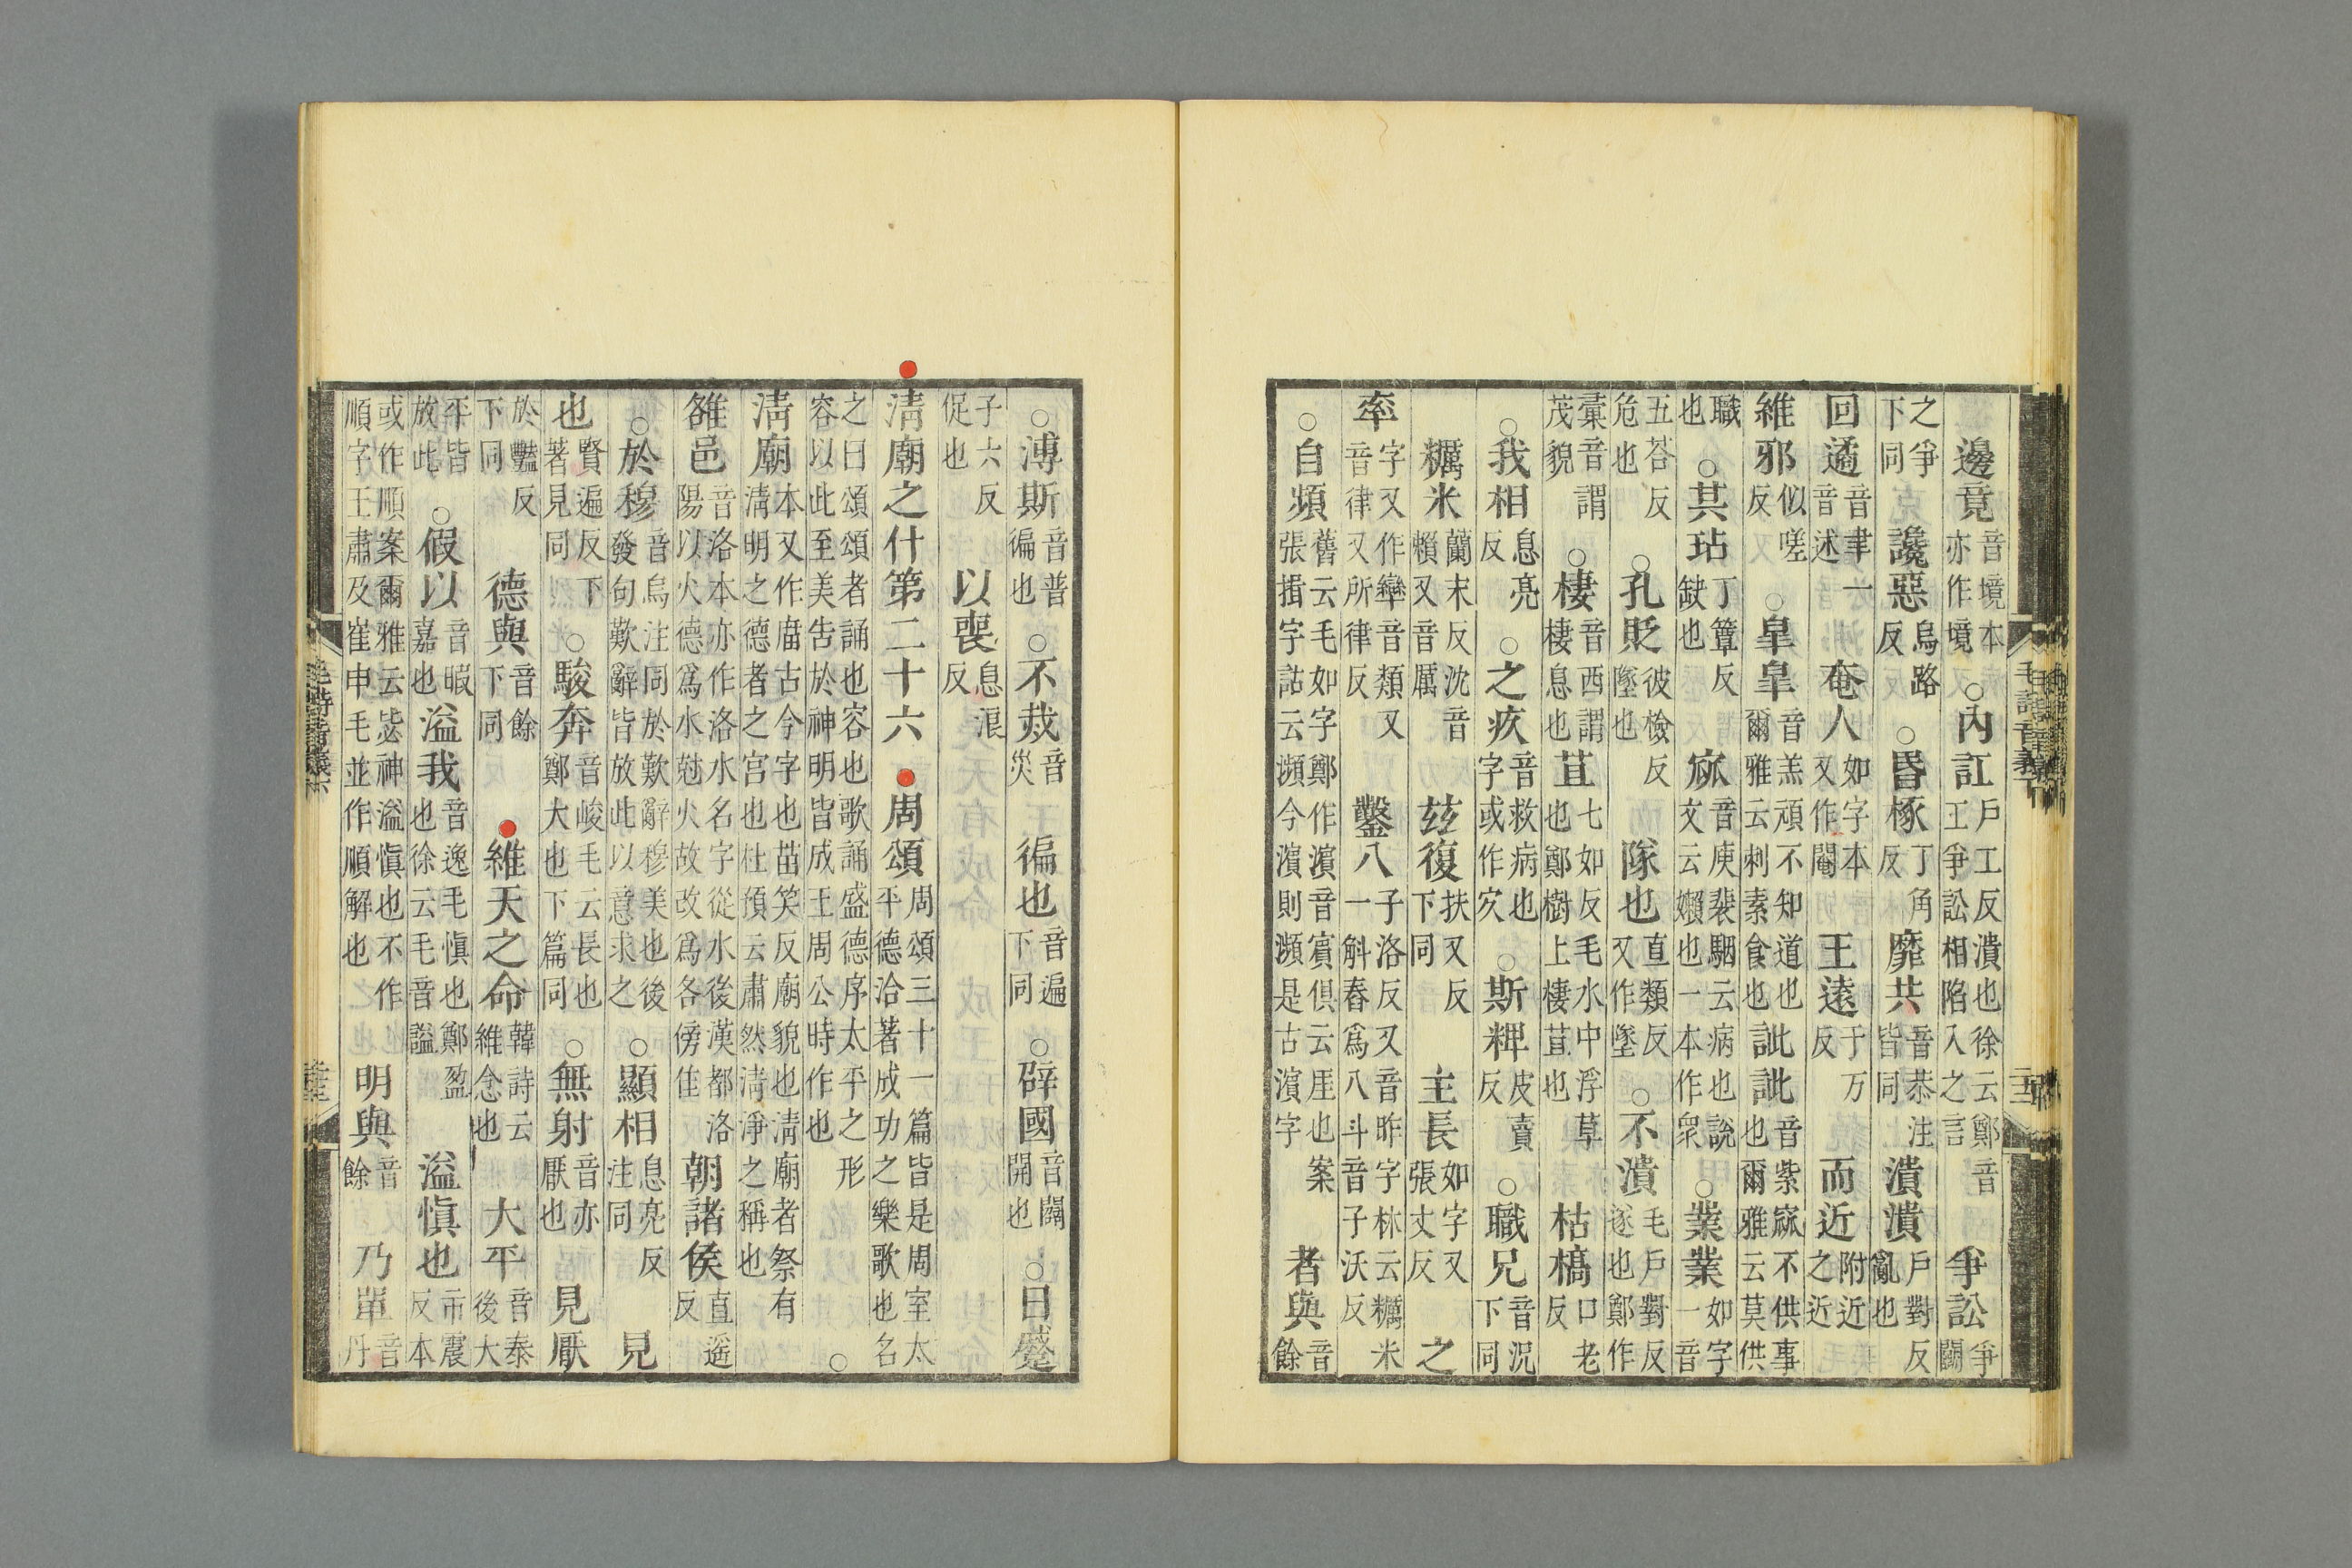 邊竟音境本亦作境○內訌戶工反潰也徐云鄭音工爭訟相陷入之言爭訟爭鬭
之爭下同讒惡烏路反○昬椓丁角反靡共音恭注皆同潰潰戶對反亂也
回遹音聿一音述奄人如字本又作閹王遠于万反而近附近之近
維邪似嗟反○皐皐音羔頑不知道也爾雅云刺素食也訿訿音紫窳不供事也爾雅云莫供
職也○其玷丁簟反缺也窳音庾裴駰云病也說文云嬾也一本作衆○業業如字一音
五荅反危也○孔貶彼檢反墜也隊也直類反又作墜○不潰毛戶對反遂也鄭作
彙音謂茂貌○棲音西謂棲息也苴七如反毛水中浮草也鄭樹上棲苴也枯槁口老反
○我相息亮反○之疚音救病也字或作㝌○斯粺皮賣反○職兄音況下同
糲米蘭末反沈音賴又音厲兹復扶又反下同主長如字又張丈反之
率字又作𦆽音類又音律又所律反鑿八子洛反又音昨字林云糲米一斛舂爲八斗音子沃反
○自頻舊云毛如字鄭作濱音賓俱云厓也案張揖字詁云瀕今濱則瀕是古濱字者與音餘
○溥斯音普徧也○不烖音災徧也音遍下同○辟國音闢開也○日蹙
子六反促也以喪息浪反
清廟之什第二十六周頌周頌三十一篇皆是周室太平德洽著成功之樂歌也名
之曰頌頌者誦也容也歌誦盛德序太平之形容以此至美告於神明皆成王周公時作也○
清廟本又作庿古今字也苗笑反廟貌也清廟者祭有清明之德者之宮也杜預云肅然清淨之稱也
雒邑音洛本亦作洛水名字從水後漢都洛陽以火德爲水尅火故改爲各傍隹朝諸侯直遥反
○於穆音烏注同於歎辭穆美也後發句歎辭皆放此以意求之○顯相息亮反注同見
也賢遍反下著見同○駿奔音峻毛云長也鄭大也下篇同○無射音亦厭也見厭
於豔反下同德與音餘下同維天之命韓詩云維念也大平音泰後大
平皆放此○假以音暇嘉也溢我音逸毛慎也鄭盈也徐云毛音謚溢慎也市震反本
或作順案爾雅云毖神溢慎也不作順字王肅及崔申毛並作順解也明與音餘乃單音丹